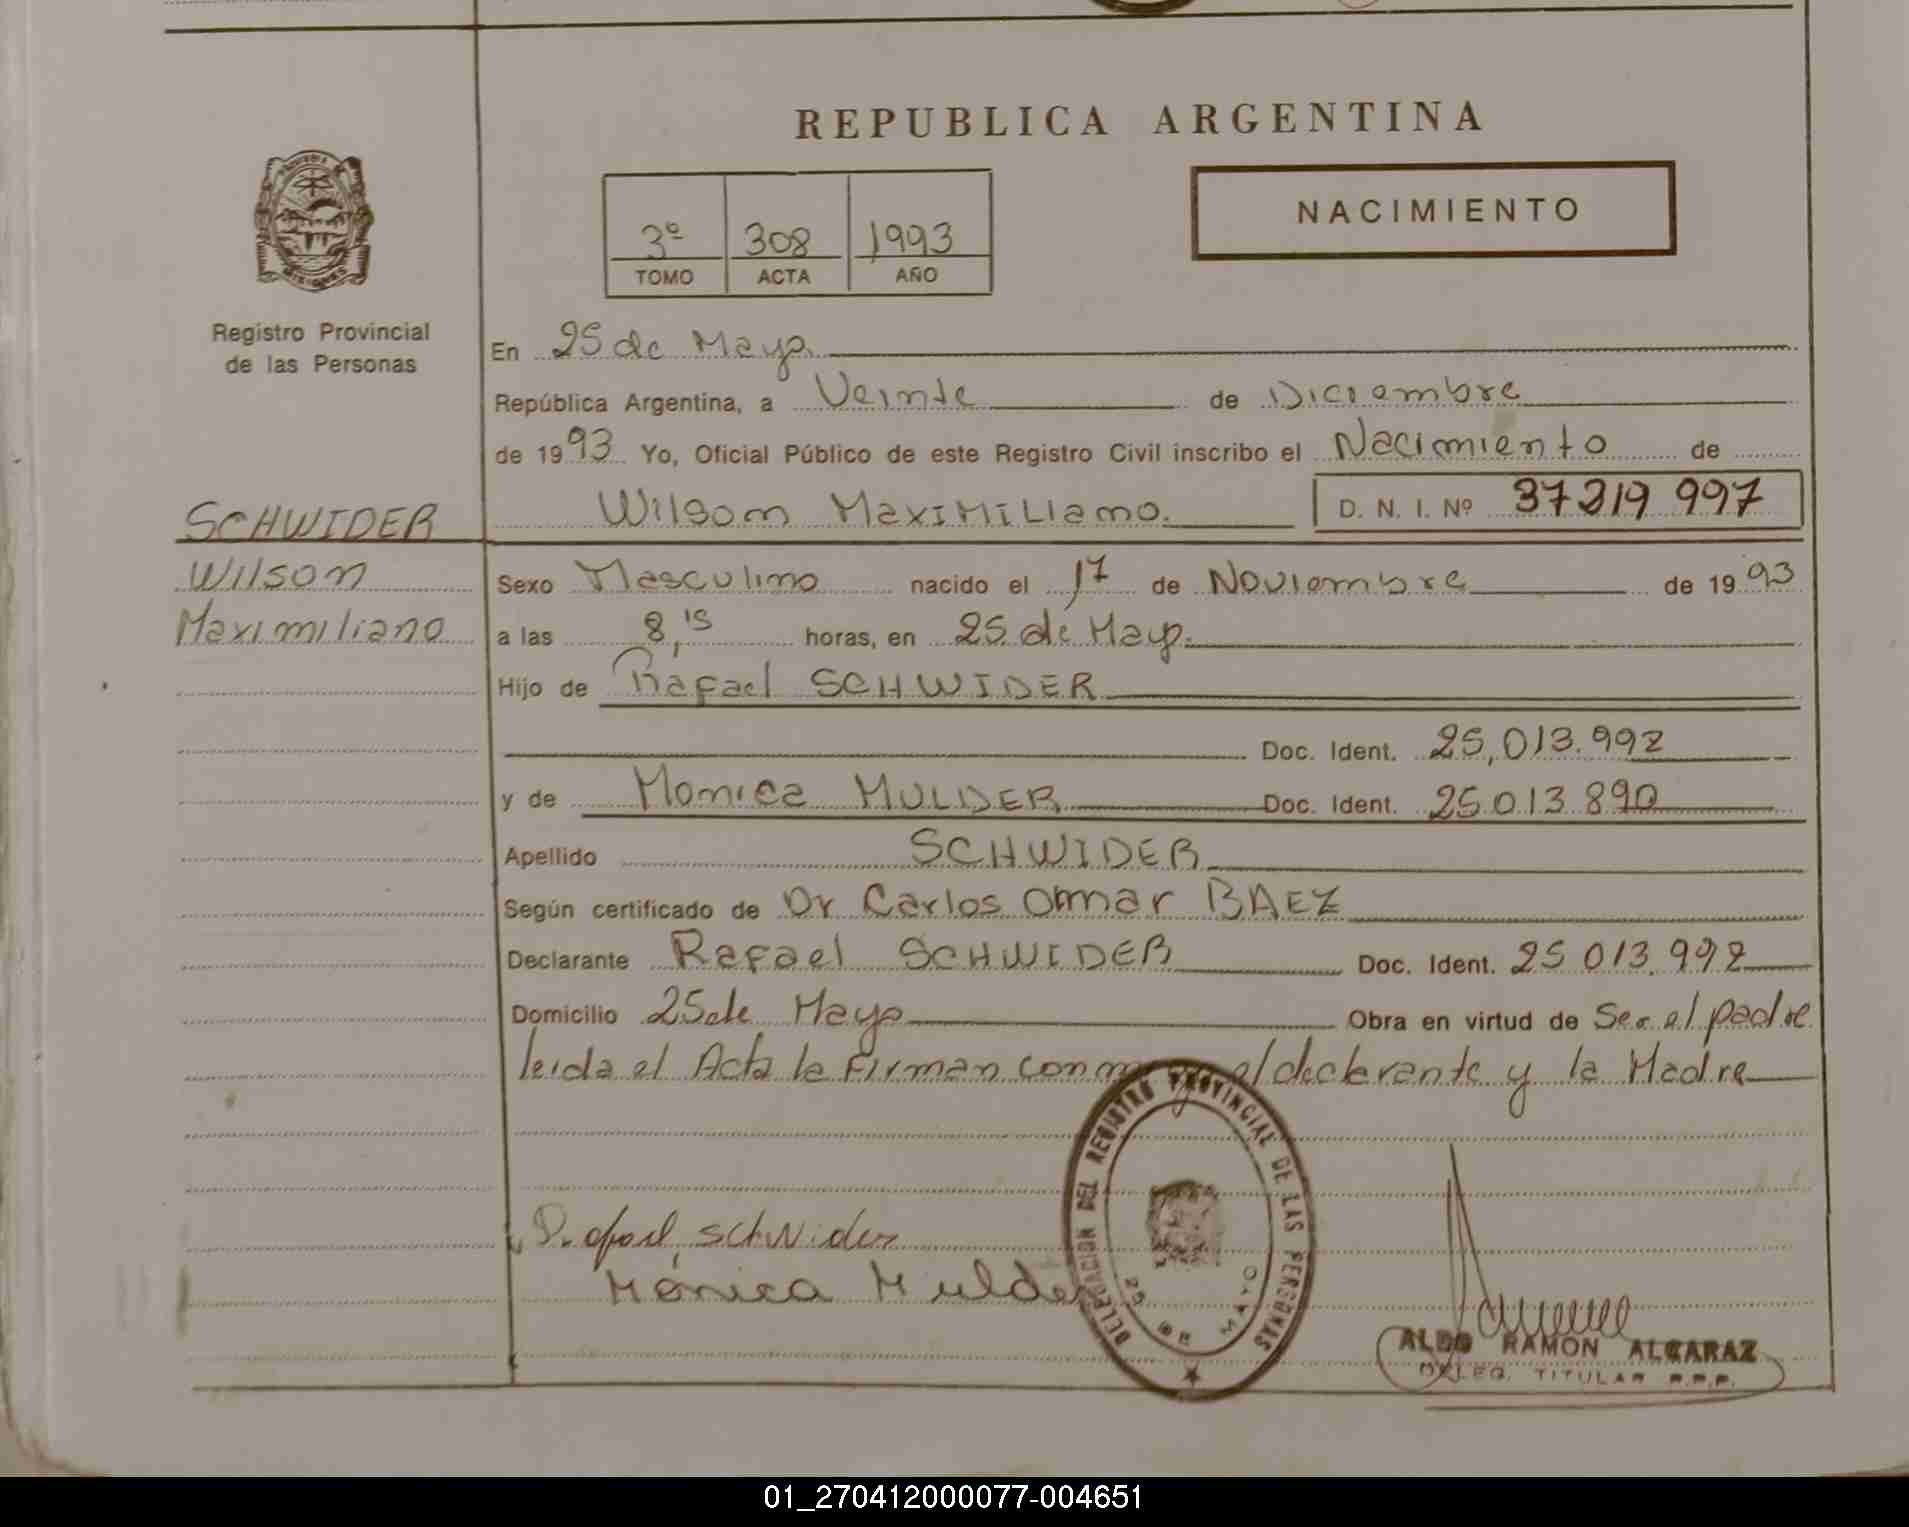 REPUBLICA ARGENTINA
NACIMIENTO
3º 308 1993
TOMO ACTA AÑO
Registro Provincial
de las Personas
En 25 de Mayo
República Argentina, a Veinte de Diciembre
de 1993 Yo, Oficial Público de este Registro Civil inscribo el Nacimiento de
SCHWIDER
Wilson
Maximiliano
Wilson Maximiliano. D. N. I. Nº 37219 997
Sexo Masculino nacido el 17 de Noviembre de 1993
a las 8,15 horas, en 25 de Mayo.
Hijo de Rafael SCHWIDER
Doc. Ident. 25,013.992
y de Monica MULDER Doc. Ident. 25 013 890
Apellido SCHWIDER
Según certificado de Dr Carlos Omar BAEZ
Declarante Rafael SCHWIDER Doc. Ident. 25 013.992
Domicilio 25 de Mayo Obra en virtud de Ser el padre
leida el Acta la Firman con el declarante y la Madre
Rafael schwider
Mónica Mulder
DELEGACION DEL REGISTRO PROVINCIAL DE LAS PERSONAS
25 DE MAYO
ALDO RAMON ALCARAZ
DELEG. TITULAR R.P.P.
01_270412000077-004651